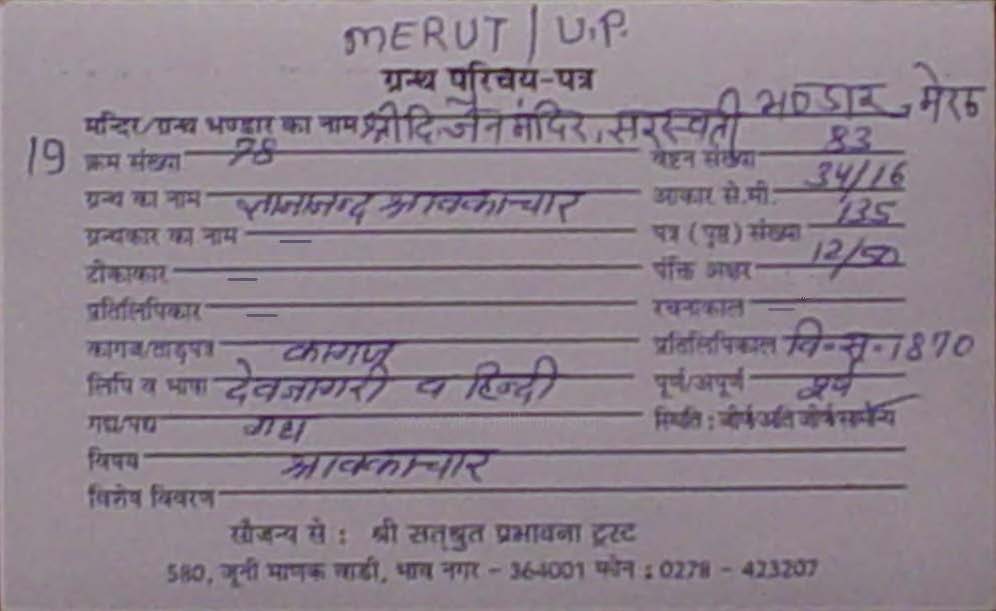 MERUT / U.P.
ग्रन्थ परिचय-पत्र
मन्दिर/ग्रन्थ भण्डार का नाम श्री दि. जैन मंदिर, सरस्वती भण्डार, मेरठ
19 क्रम संख्या 78 वेष्टन संख्या 83
ग्रन्थ का नाम ज्ञानानन्द श्रावकाचार आकार से.मी. 34/16
ग्रन्थकार का नाम — पत्र (पृष्ठ) संख्या 135
टीकाकार — पंक्ति अक्षर 12/50
प्रतिलिपिकार — रचनाकाल —
कागज/ताड़पत्र कागज प्रतिलिपिकाल वि.सं. 1870
लिपि व भाषा देवनागरी व हिन्दी पूर्ण/अपूर्ण पूर्ण
गद्य/पद्य गद्य स्थिति : जीर्ण/अति जीर्ण/सामान्य
विषय श्रावकाचार
विशेष विवरण
सौजन्य से : श्री सत्श्रुत प्रभावना ट्रस्ट
580, जूनी माणक वाडी, भाव नगर - 364001 फोन : 0278 - 423207